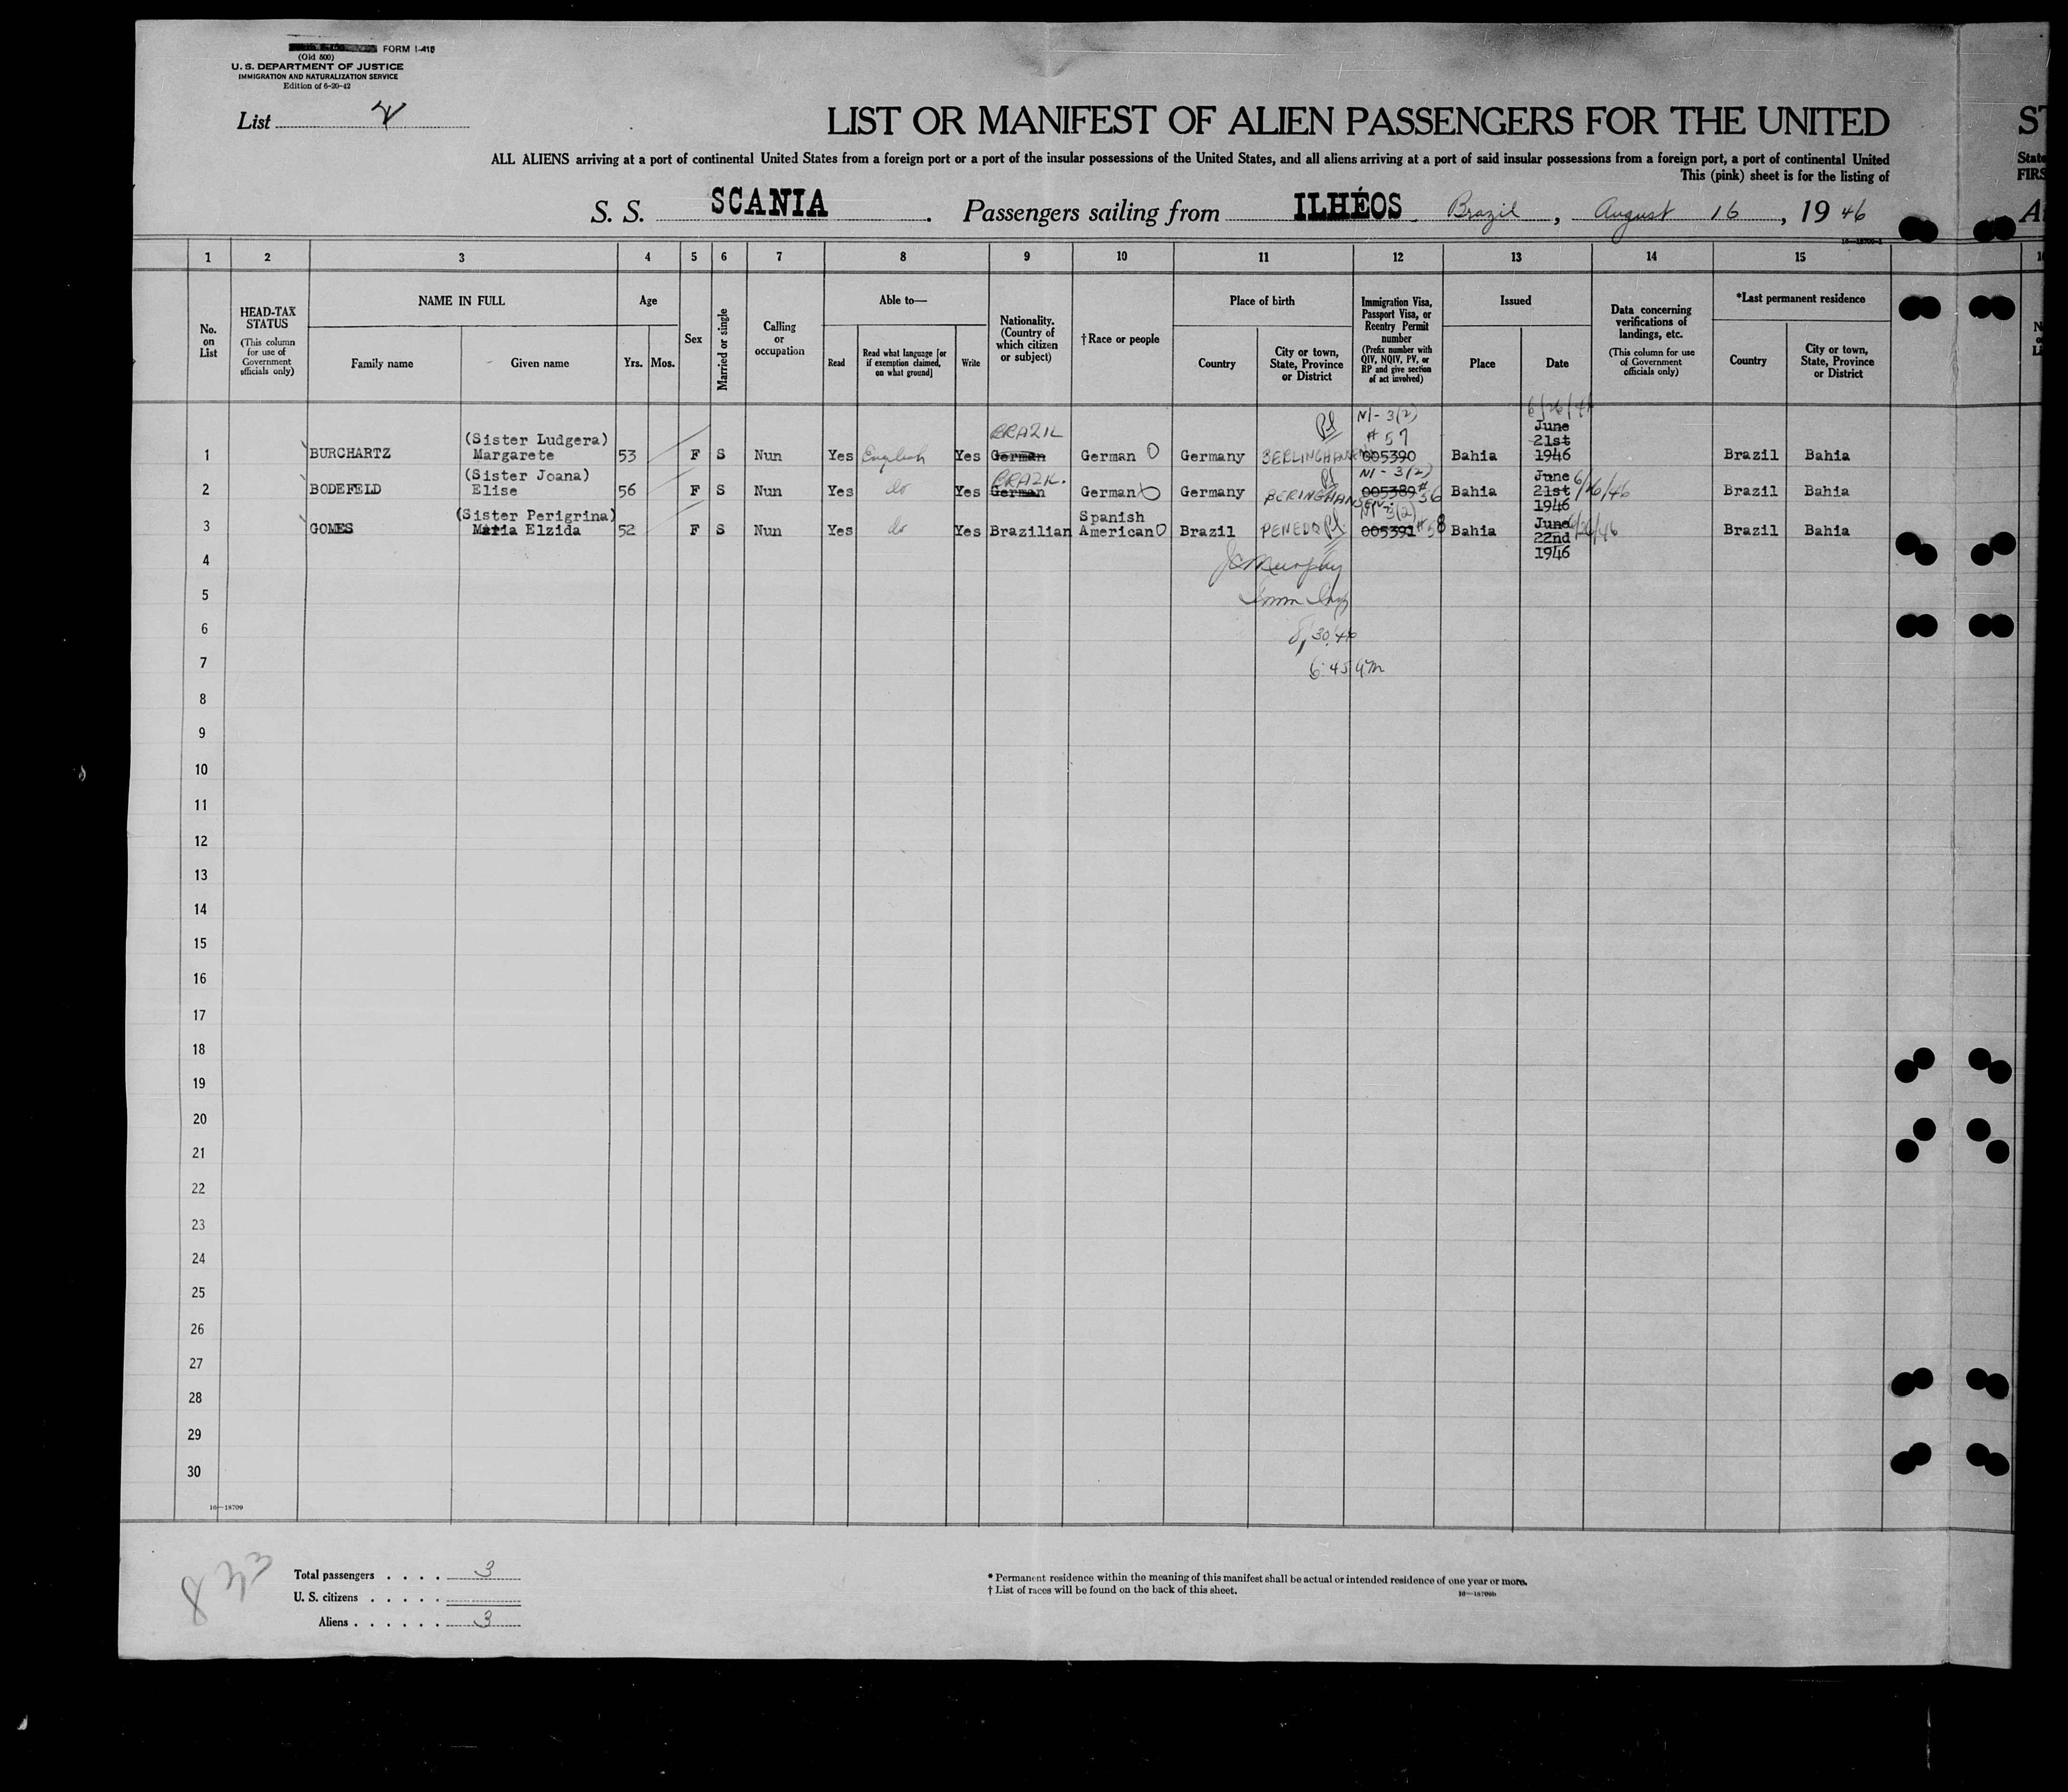 FORM I-415
(Old 500)
U. S. DEPARTMENT OF JUSTICE
IMMIGRATION AND NATURALIZATION SERVICE
Edition of 6-20-42
List
LIST OR MANIFEST OF ALIEN PASSENGERS FOR THE UNITED
ST
ALL ALIENS arriving at a port of continental United States from a foreign port or a port of the insular possessions of the United States, and all aliens arriving at a port of said insular possessions from a foreign port, a port of continental United
State
This (pink) sheet is for the listing of
FIRS
S. S. SCANIA. Passengers sailing from ILHÉOS Brazil, August 16, 19 46
1 2 3 4 5 6 7 8 9 10 11 12 13 14 15
No. on List
HEAD-TAX STATUS
(This column for use of Government officials only)
NAME IN FULL
Family name
Given name
Age
Yrs.
Mos.
Sex
Married or single
Calling or occupation
Able to—
Read
Read what language [or if exemption claimed, on what ground]
Write
Nationality. (Country of which citizen or subject)
†Race or people
Place of birth
Country
City or town, State, Province or District
Immigration Visa, Passport Visa, or Reentry Permit number
(Prefix number with QIV, NQIV, PV, or RP and give section of act involved)
Issued
Place
Date
Data concerning verifications of landings, etc.
(This column for use of Government officials only)
*Last permanent residence
Country
City or town, State, Province or District
BRAZIL NI-3(2) #57 6/26/46
1 BURCHARTZ (Sister Ludgera) Margarete 53 F S Nun Yes English Yes German German Germany 005390 Bahia June 21st 1946 Brazil Bahia
BRAZIL. NI-3(2) #56 6/26/46
2 BODEFELD (Sister Joana) Elise 56 F S Nun Yes do Yes German German Germany BERINGHAUSEN 005389 Bahia June 21st 1946 Brazil Bahia
3 GOMES (Sister Perigrina) Maria Elzida 52 F S Nun Yes do Yes Brazilian Spanish American Brazil PENEDO 005391 #58 Bahia June 22nd 1946 Brazil Bahia
4
JC Murphy
5
Imm Insp
6
8/30/46
7
6:45 am
8
9
10
11
12
13
14
15
16
17
18
19
20
21
22
23
24
25
26
27
28
29
30
16—18709
Total passengers . . . . 3
U. S. citizens . . . . .
Aliens . . . . . . 3
* Permanent residence within the meaning of this manifest shall be actual or intended residence of one year or more.
† List of races will be found on the back of this sheet.